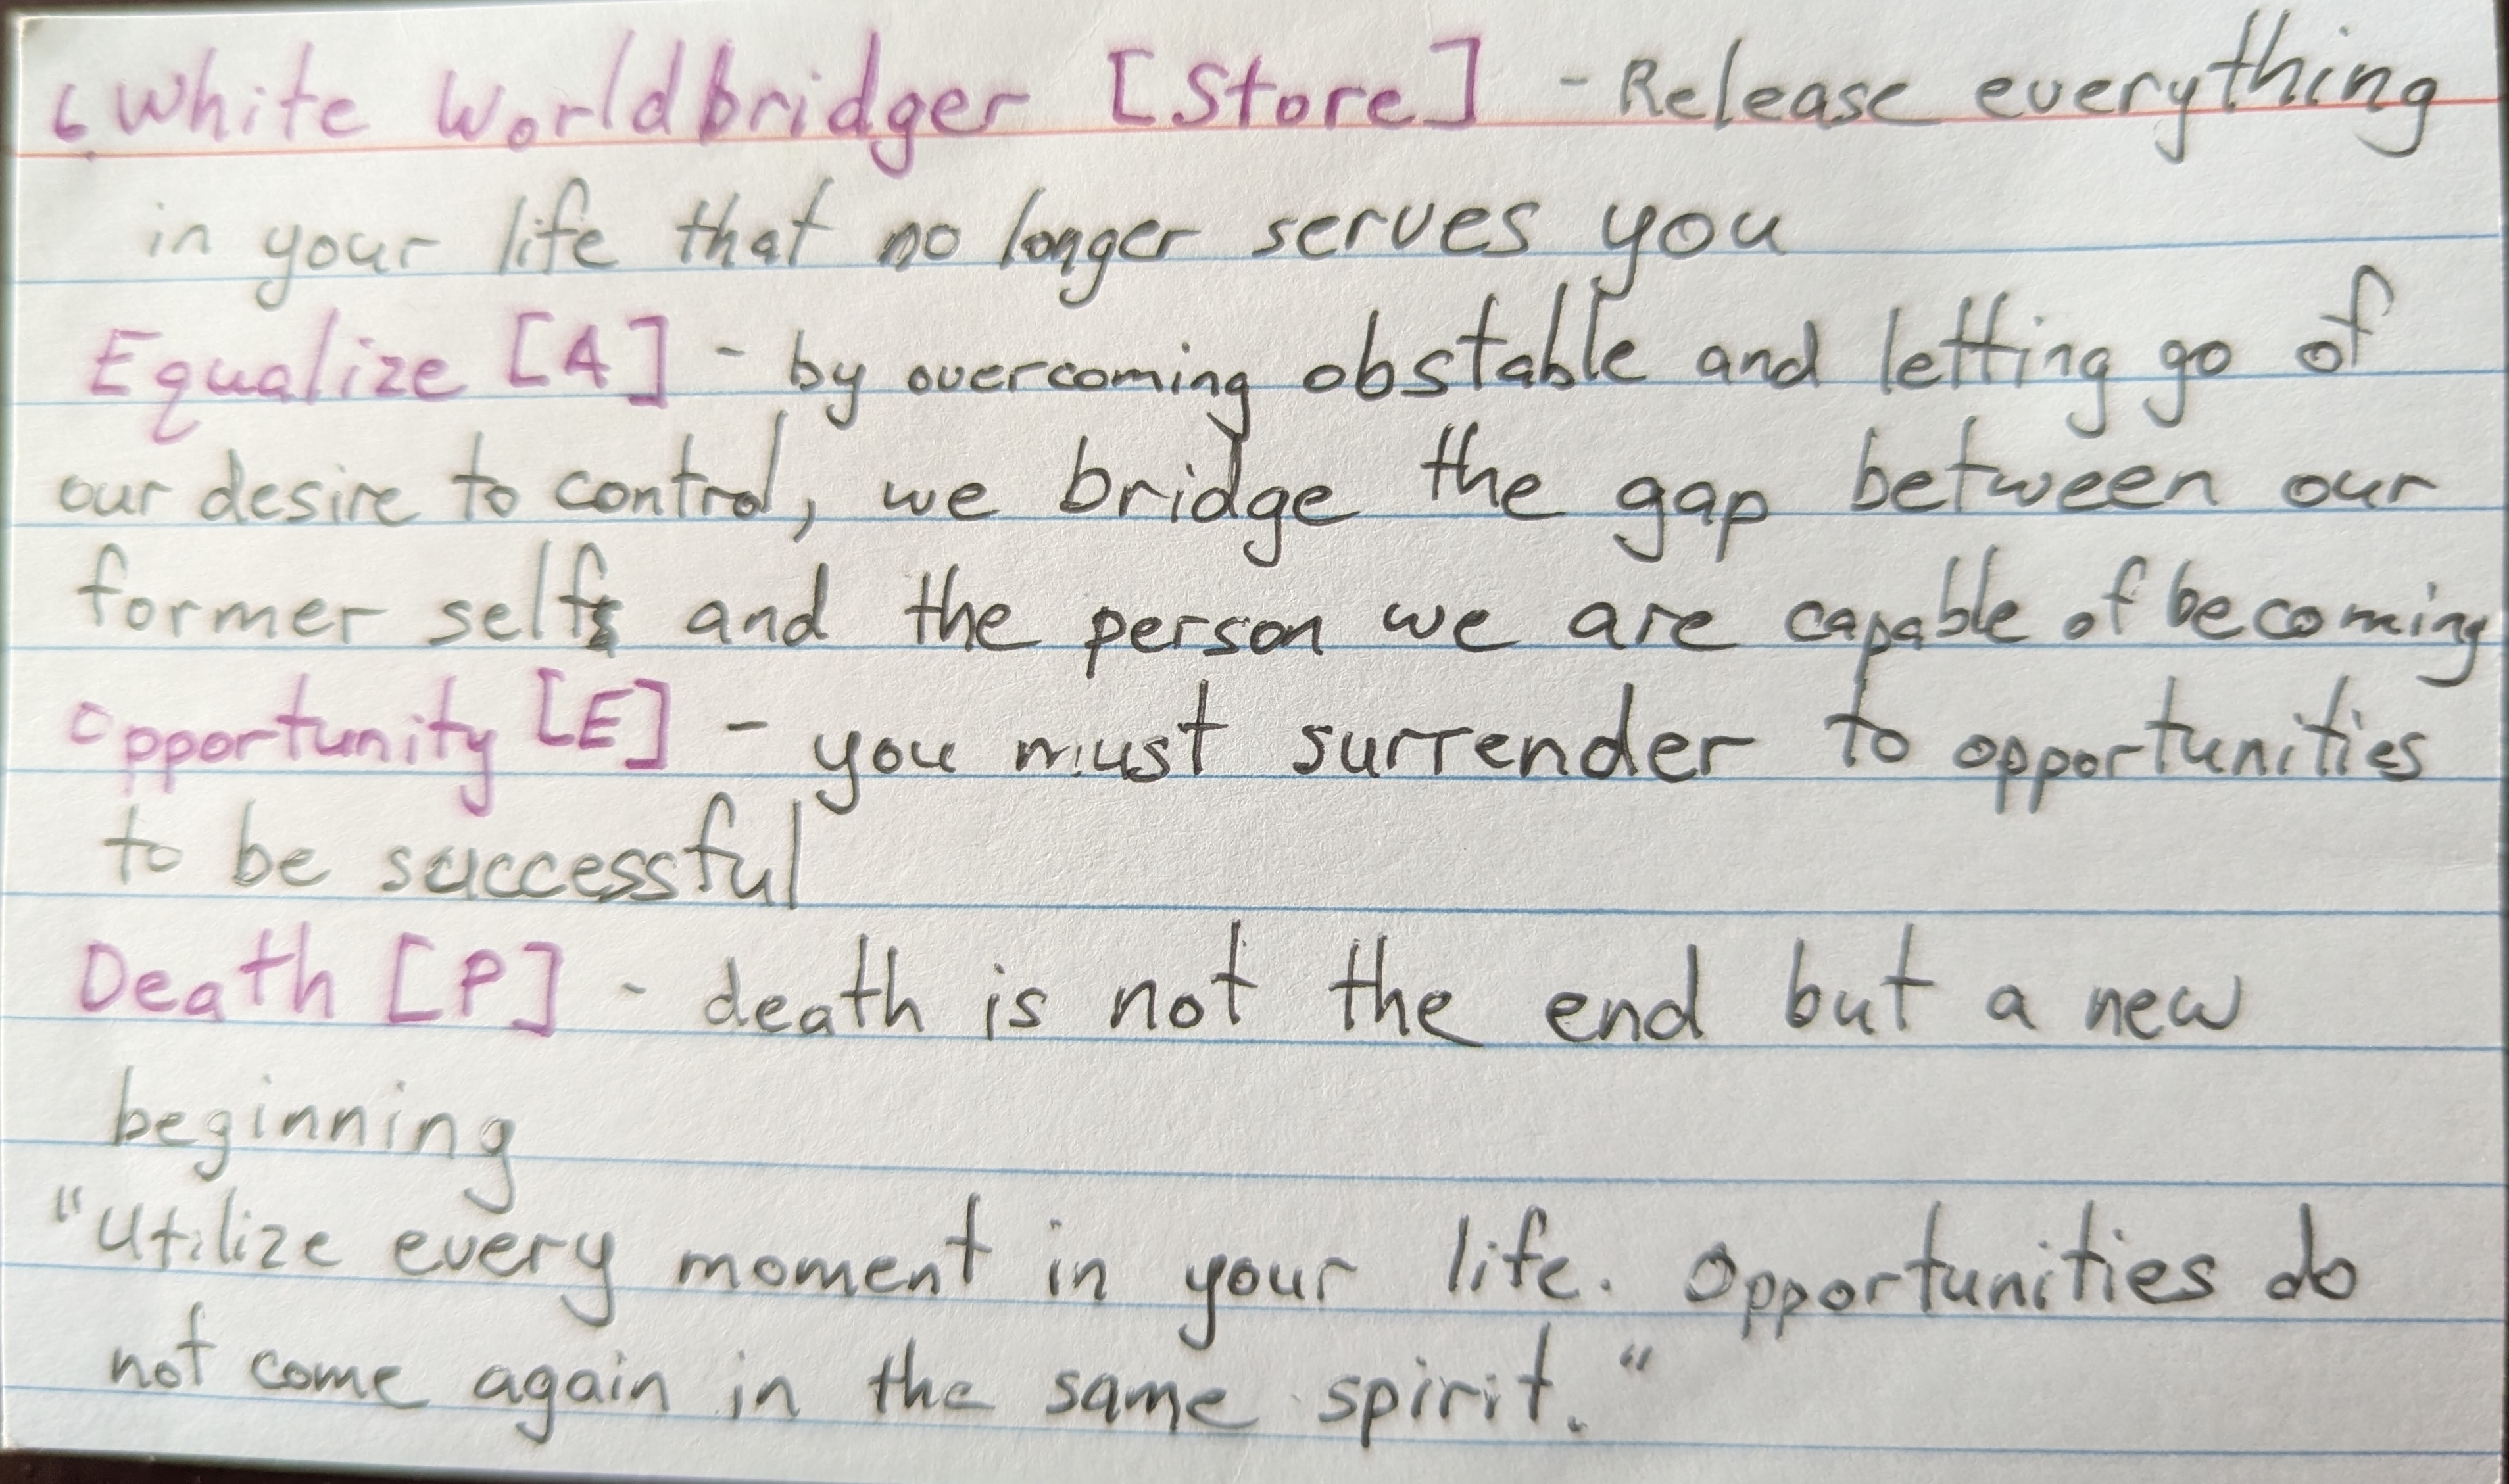 6. White Worldbridger [Store] - Release everything
in your life that no longer serves you
Equalize [A] - by overcoming obstable and letting go of
our desire to control, we bridge the gap between our
former self and the person we are capable of becoming
Opportunity [E] - you must surrender to opportunities
to be successful
Death [P] - death is not the end but a new
beginning
"Utilize every moment in your life. Opportunities do
not come again in the same spirit."